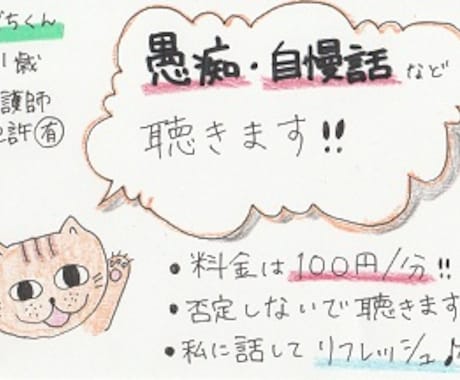 ちくん
歳
護師
許有
愚痴・自慢話など
聴きます!!
・料金は100円/分!!
・否定しないで聴きます
・私に話してリフレッシュ♪